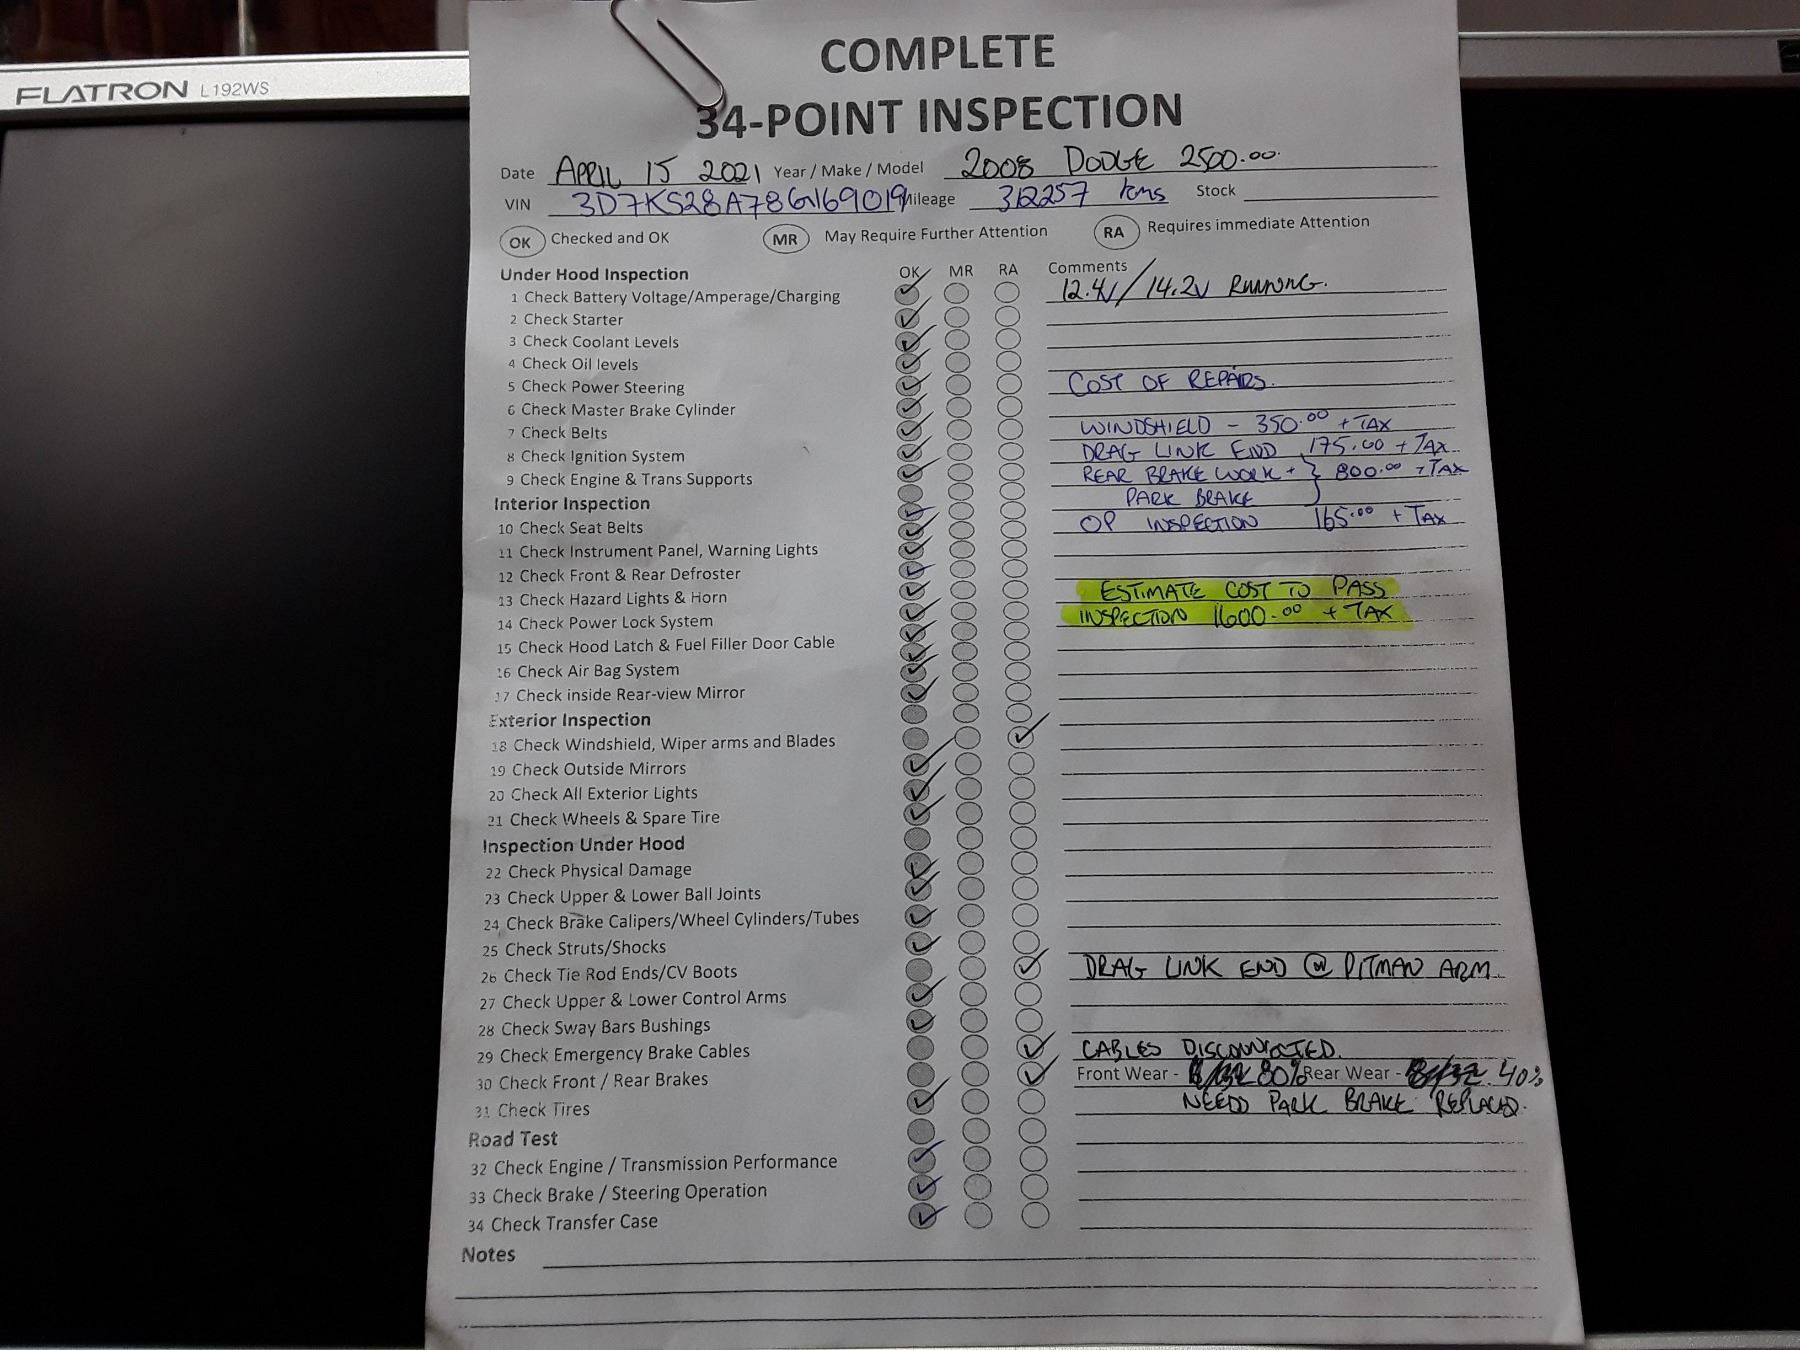 FLATRON L192WS
COMPLETE
34-POINT INSPECTION
Date APRIL 15 2021 Year / Make / Model 2008 DODGE 2500.00
VIN 3D7KS28A78G169019 Mileage 312257 kms Stock
OK Checked and OK MR May Require Further Attention RA Requires immediate Attention
Under Hood Inspection OK MR RA Comments
1 Check Battery Voltage/Amperage/Charging 12.4V / 14.2V RUNNING.
2 Check Starter
3 Check Coolant Levels
4 Check Oil levels
5 Check Power Steering COST OF REPAIRS.
6 Check Master Brake Cylinder
7 Check Belts WINDSHIELD - 350.00 + TAX
8 Check Ignition System DRAG LINK END 175.00 + TAX
9 Check Engine & Trans Supports REAR BRAKE WORK + } 800.00 + TAX
Interior Inspection PARK BRAKE
10 Check Seat Belts OP INSPECTION 165.00 + TAX
11 Check Instrument Panel, Warning Lights
12 Check Front & Rear Defroster
13 Check Hazard Lights & Horn ESTIMATE COST TO PASS
14 Check Power Lock System INSPECTION 1600.00 + TAX
15 Check Hood Latch & Fuel Filler Door Cable
16 Check Air Bag System
17 Check inside Rear-view Mirror
Exterior Inspection
18 Check Windshield, Wiper arms and Blades
19 Check Outside Mirrors
20 Check All Exterior Lights
21 Check Wheels & Spare Tire
Inspection Under Hood
22 Check Physical Damage
23 Check Upper & Lower Ball Joints
24 Check Brake Calipers/Wheel Cylinders/Tubes
25 Check Struts/Shocks
26 Check Tie Rod Ends/CV Boots DRAG LINK END @ PITMAN ARM
27 Check Upper & Lower Control Arms
28 Check Sway Bars Bushings
29 Check Emergency Brake Cables CABLES DISCONNECTED.
30 Check Front / Rear Brakes Front Wear - 80% Rear Wear - 40%
31 Check Tires NEEDS PARK BRAKE REPLACED.
Road Test
32 Check Engine / Transmission Performance
33 Check Brake / Steering Operation
34 Check Transfer Case
Notes